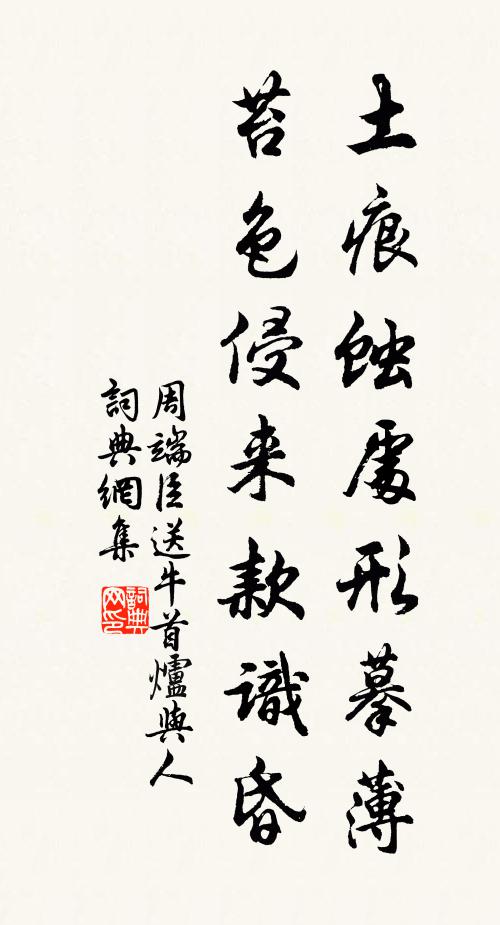 土痕蝕處形摹薄
苔色侵来款識昏
周端臣送牛首爐與人
詞典網集
詞典网印